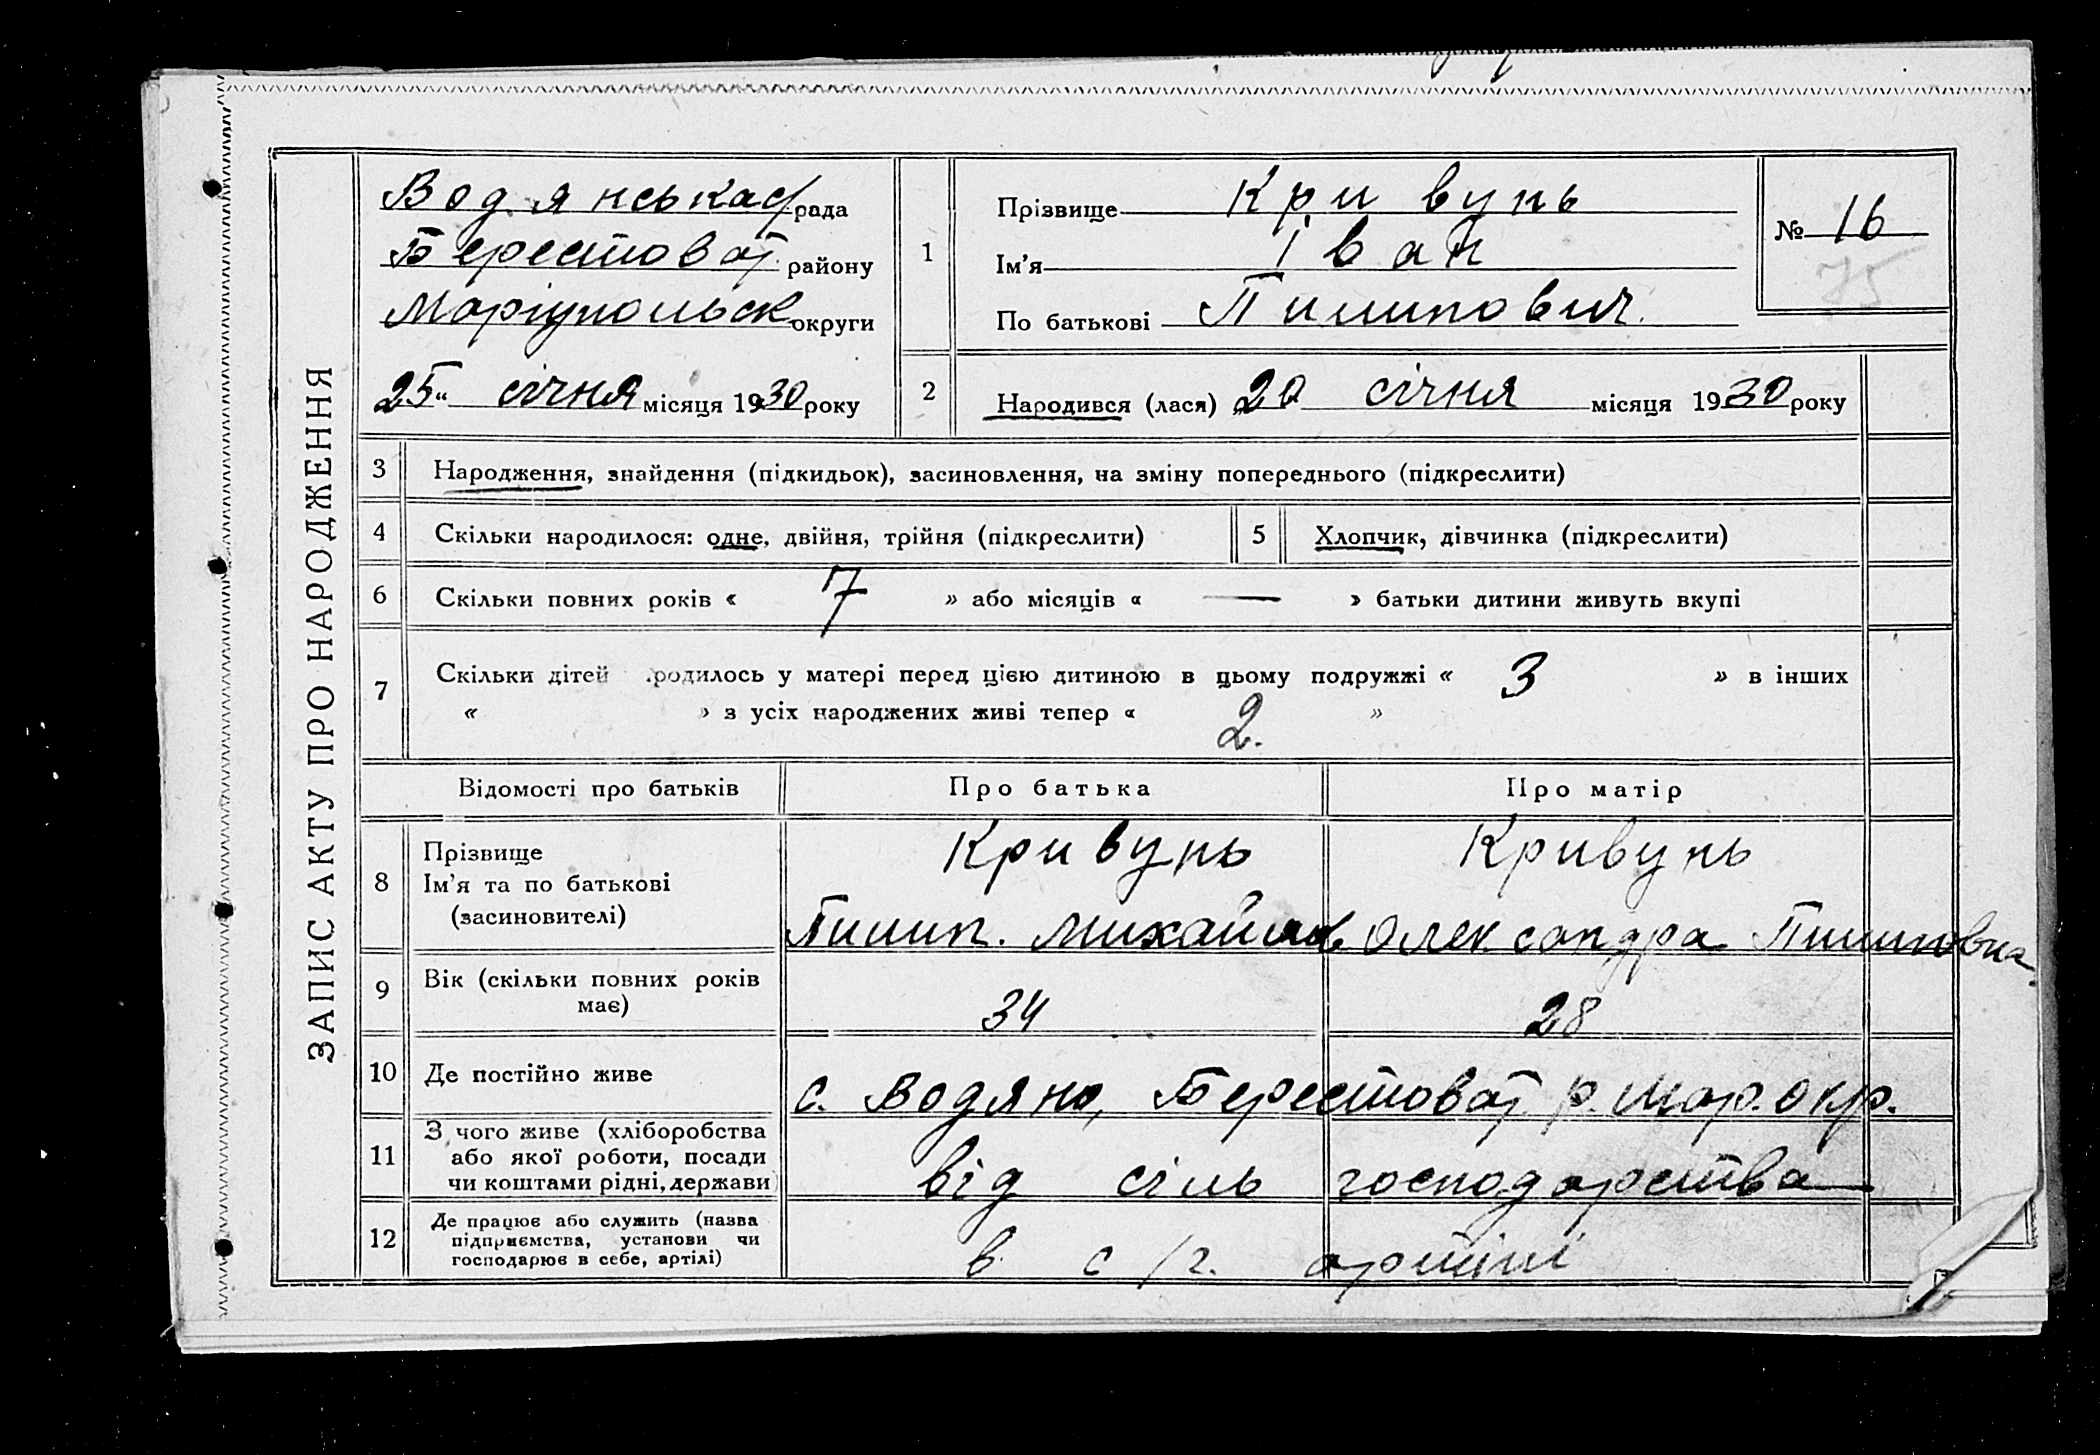 ЗАПИС АКТУ ПРО НАРОДЖЕННЯ
Водянська с/рада
Берестоват. району
Маріупольск округи
25 " січня місяця 1930 року
1
Прізвище Кривунь
Ім'я Іван
По батькові Пилипович.
№ 16
75
2
Народився (лася) 20 січня місяця 1930 року
3 Народження, знайдення (підкидьок), засиновлення, на зміну попереднього (підкреслити)
4 Скільки народилося: одне, двійня, трійня (підкреслити)
5 Хлопчик, дівчинка (підкреслити)
6 Скільки повних років « 7 » або місяців « — » батьки дитини живуть вкупі
7 Скільки дітей родилось у матері перед цією дитиною в цьому подружжі « 3 » в інших
« » з усіх народжених живі тепер « 2. »
Відомості про батьків
Про батька
Про матір
8 Прізвище
Ім'я та по батькові
(засиновителі)
Кривунь
Пилип. Михайлов
Кривунь
Олександра Пилиповна
9 Вік (скільки повних років
має)
34
28
10 Де постійно живе
с. Водяно, Берестоват. р. Мар. окр.
11 З чого живе (хліборобства
або якої роботи, посади
чи коштами рідні, держави)
від сіль господарства
12 Де працює або служить (назва
підприємства, установи чи
господарює в себе, артілі)
в с/г. артілі